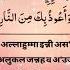 وَأَعُوذُ بِكَ مِنَ النَّارِ
अल्लाहुम्मा इन्नी अस'
अलुकल जन्नह व अ'उ